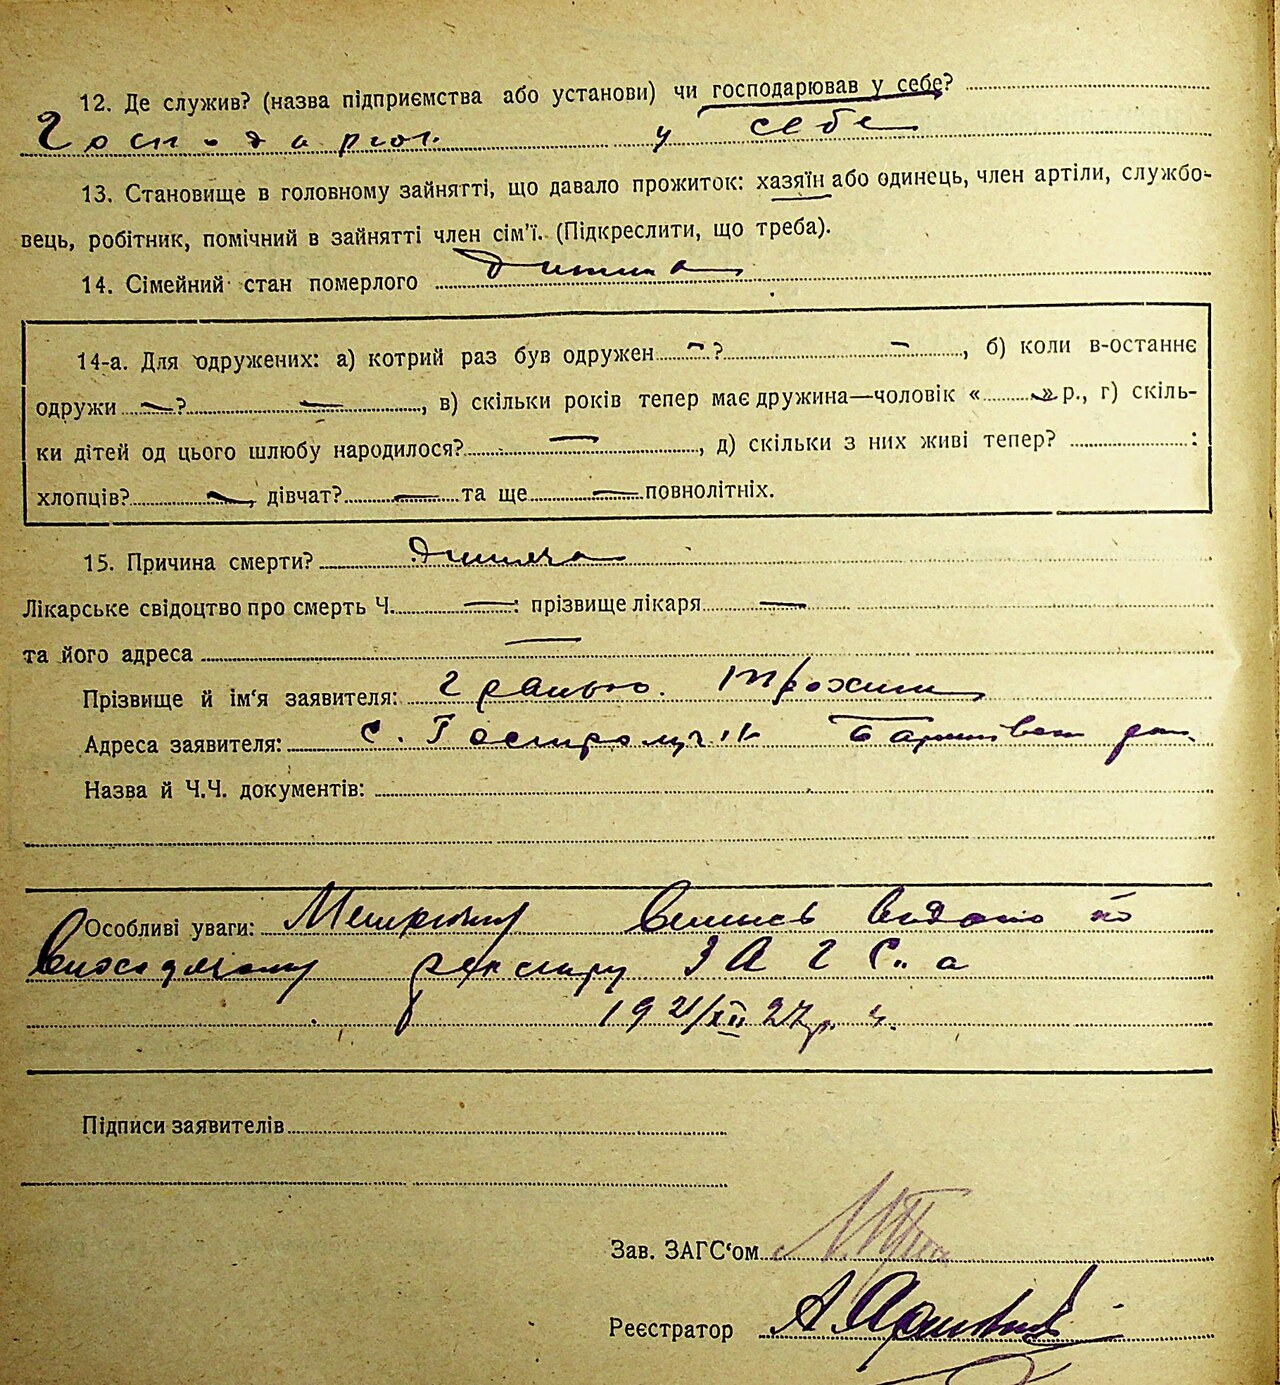 12. Де служив? (назва підприємства або установи) чи господарював у себе?
у себе
13. Становище в головному зайнятті, що давало прожиток: хазяїн або одинець, член артіли, службо-
вець, робітник, помічний в зайнятті член сім'ї. (Підкреслити, що треба).
14. Сімейний стан померлого дитина
14-а. Для одружених: а) котрий раз був одружен — ? —, б) коли в-останнє
одружи — ? —, в) скільки років тепер має дружина—чоловік « — » р., г) скіль-
ки дітей од цього шлюбу народилося? —, д) скільки з них живі тепер? :
хлопців? —, дівчат? — та ще — повнолітніх.
15. Причина смерти? дитяча
Лікарське свідоцтво про смерть Ч. — : прізвище лікаря —
та його адреса —
Прізвище й ім'я заявителя: Трохим
Адреса заявителя: с.
Назва й Ч.Ч. документів:
Особливі уваги: видано по
ЗАГС.а
Підписи заявителів
Зав. ЗАГС'ом
Реєстратор А.